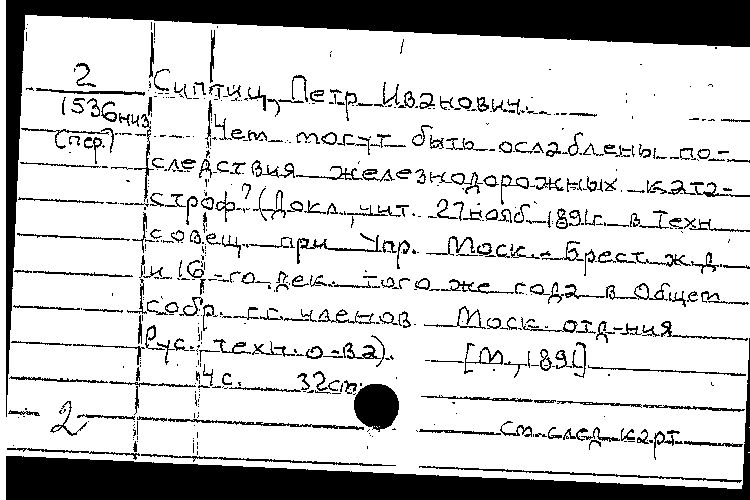 2
1536 низ
(пер.)
Сиптиц, Петр Иванович.
Чем могут быть ослаблены по-
следствия железнодорожных ката-
строф? (Докл., чит. 27 нояб. 1891 г. в Техн.
совещ. при Упр. Моск.-Брест. ж.д
и 16-го дек. того же года в Общем
собр. г.г. членов Моск. отд-ния
Рус. техн. о-ва). [М., 1891]
32 стр.
2
см. след карт